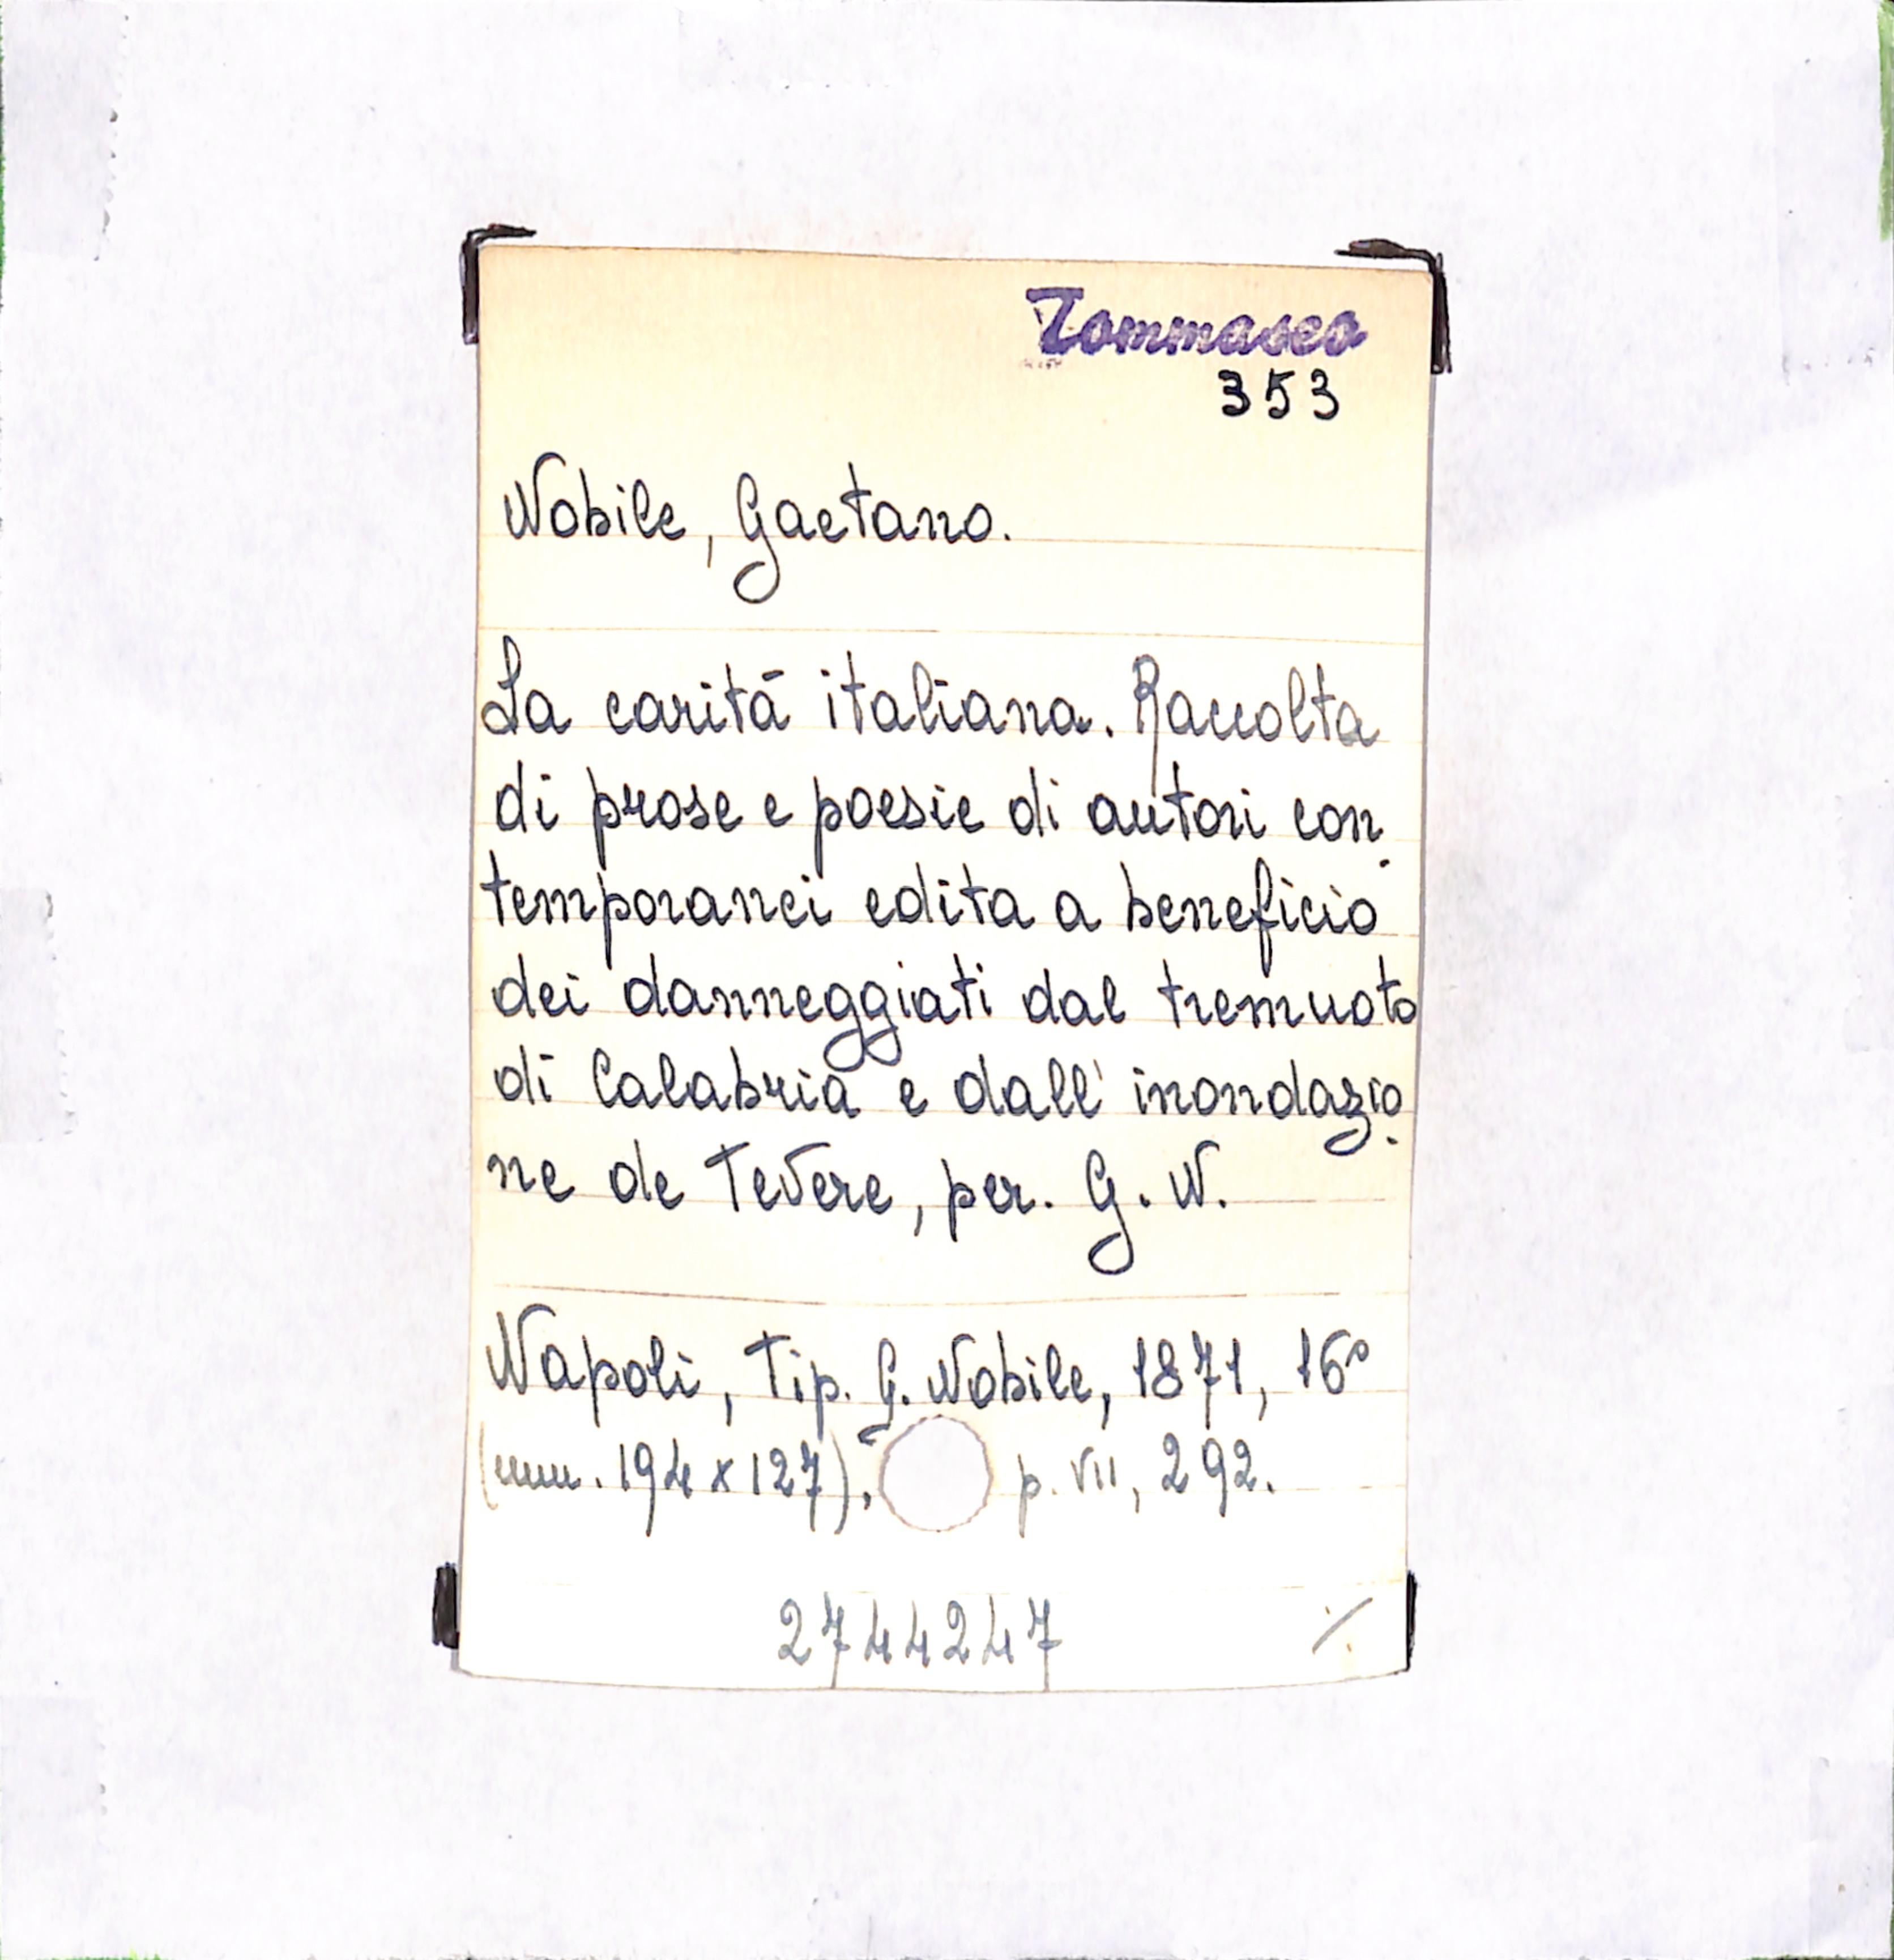 Tommaseo
353
Nobile, Gaetano.
La carità italiana. Raccolta
di prose e poesie di autori con-
temporanei edita a beneficio
dei danneggiati dal tremuoto
di Calabria e dall' inondazio-
ne de Tevere, per. G. N.
Napoli, Tip. G. Nobile, 1871, 16°
(mm. 194 x 127), p. VII, 292.
2744247 ./.